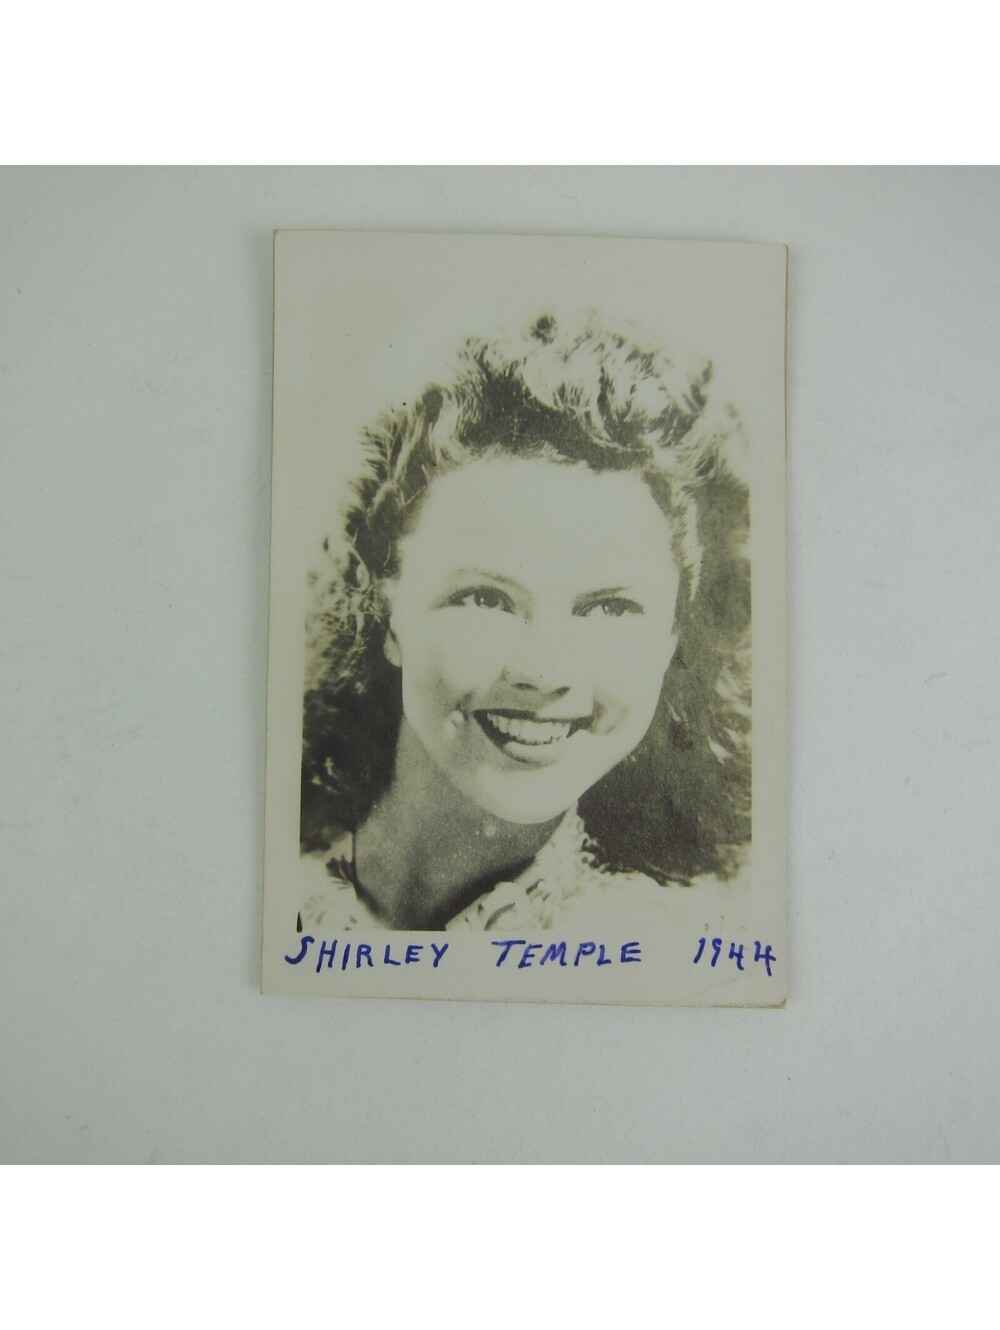 SHIRLEY TEMPLE 1944